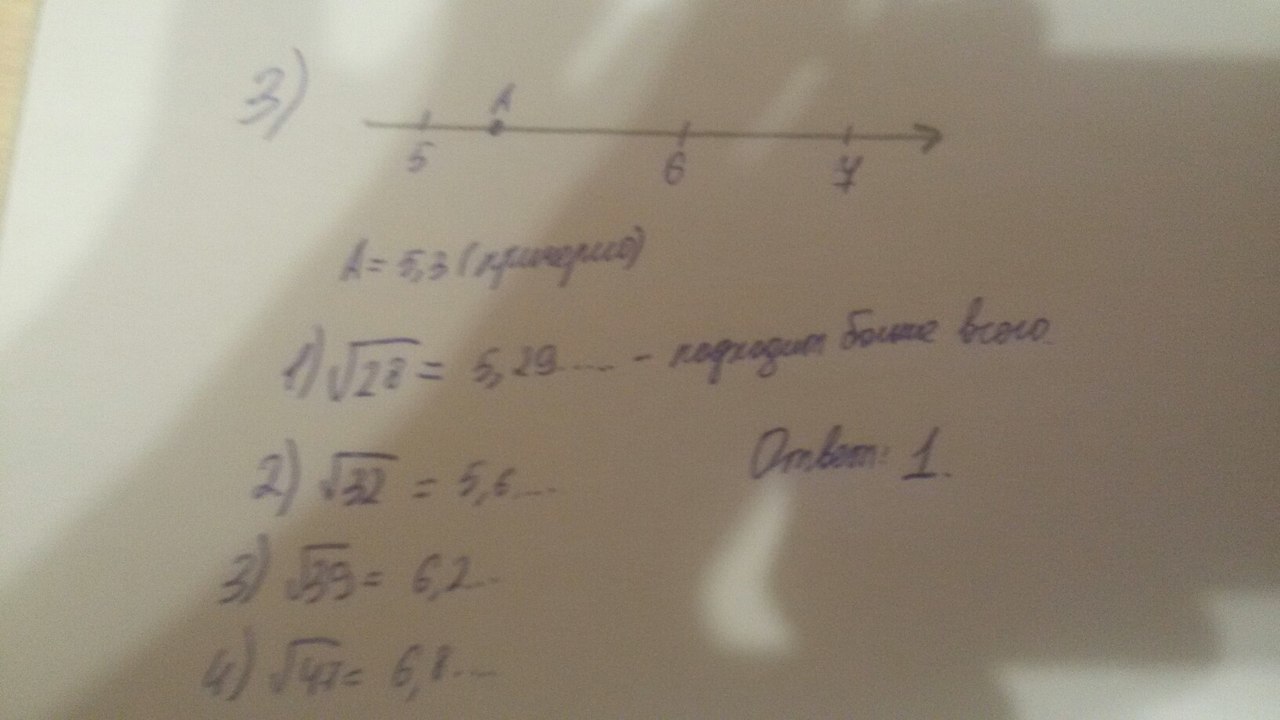 3)
A
5 6 7
A = 5,3 (примерно)
1) √28 = 5,29.... - подходит больше всего.
2) √32 = 5,6....
Ответ: 1.
3) √39 = 6,2...
4) √47 = 6,8....